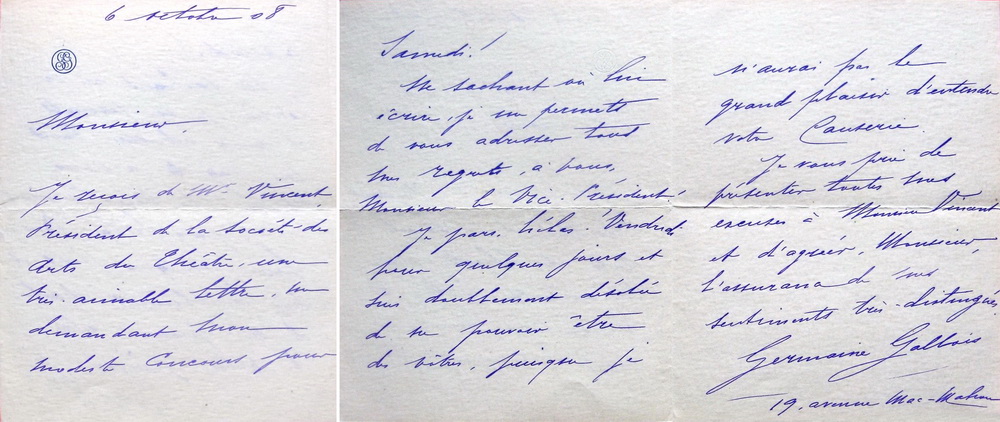 6 octobre 08
Monsieur,
Je reçois de Mr Vincent,
Président de la Société des
Arts du Théâtre, une
très-aimable lettre, me
demandant mon
modeste Concours pour
Samedi!
Ne sachant où lui
écrire, je me permets
de vous adresser tous
mes regrets, à vous,
Monsieur le Vice-Président!
Je pars, hélas! Vendredi
pour quelques jours et
suis doublement désolée
de ne pouvoir être
des vôtres, puisque je
n'aurai pas le
grand plaisir d'entendre
votre Causerie.
Je vous prie de
présenter toutes mes
excuses à Monsieur Vincent
et d'agréer, Monsieur,
l'assurance de mes
sentiments très-distingués.
Germaine Gallois
19, avenue Mac-Mahon